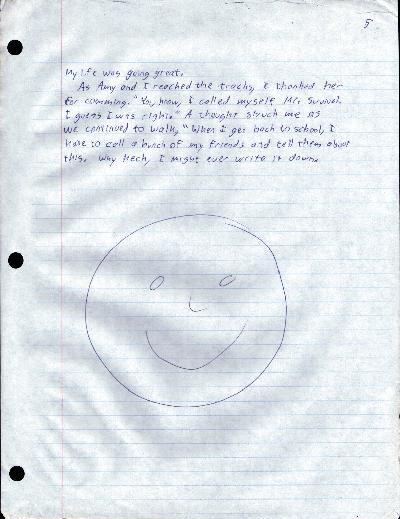 5
My life was going great.
As Amy and I reached the trachy, I thanked her
for comming. "You, know, I called myself Mr. Survival.
I guess I was right." A thought struck me as
we continued to walk, "When I get back to school, I
have to call a bunch of my friends and tell them about
this. Why Hech, I might ever write it down.